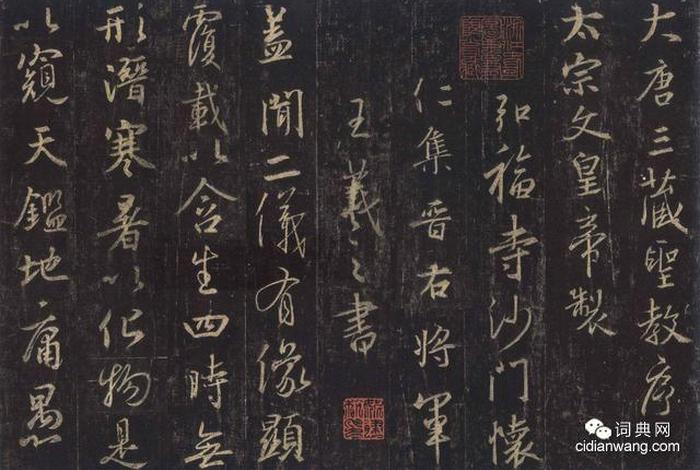 大唐三藏聖教序
太宗文皇帝製
弘福寺沙門懷
仁集晉右將軍
王羲之書
蓋聞二儀有像顯
覆載以含生四時無
形潛寒暑以化物是
以窺天鑑地庸愚
词典网
cidianwang.com